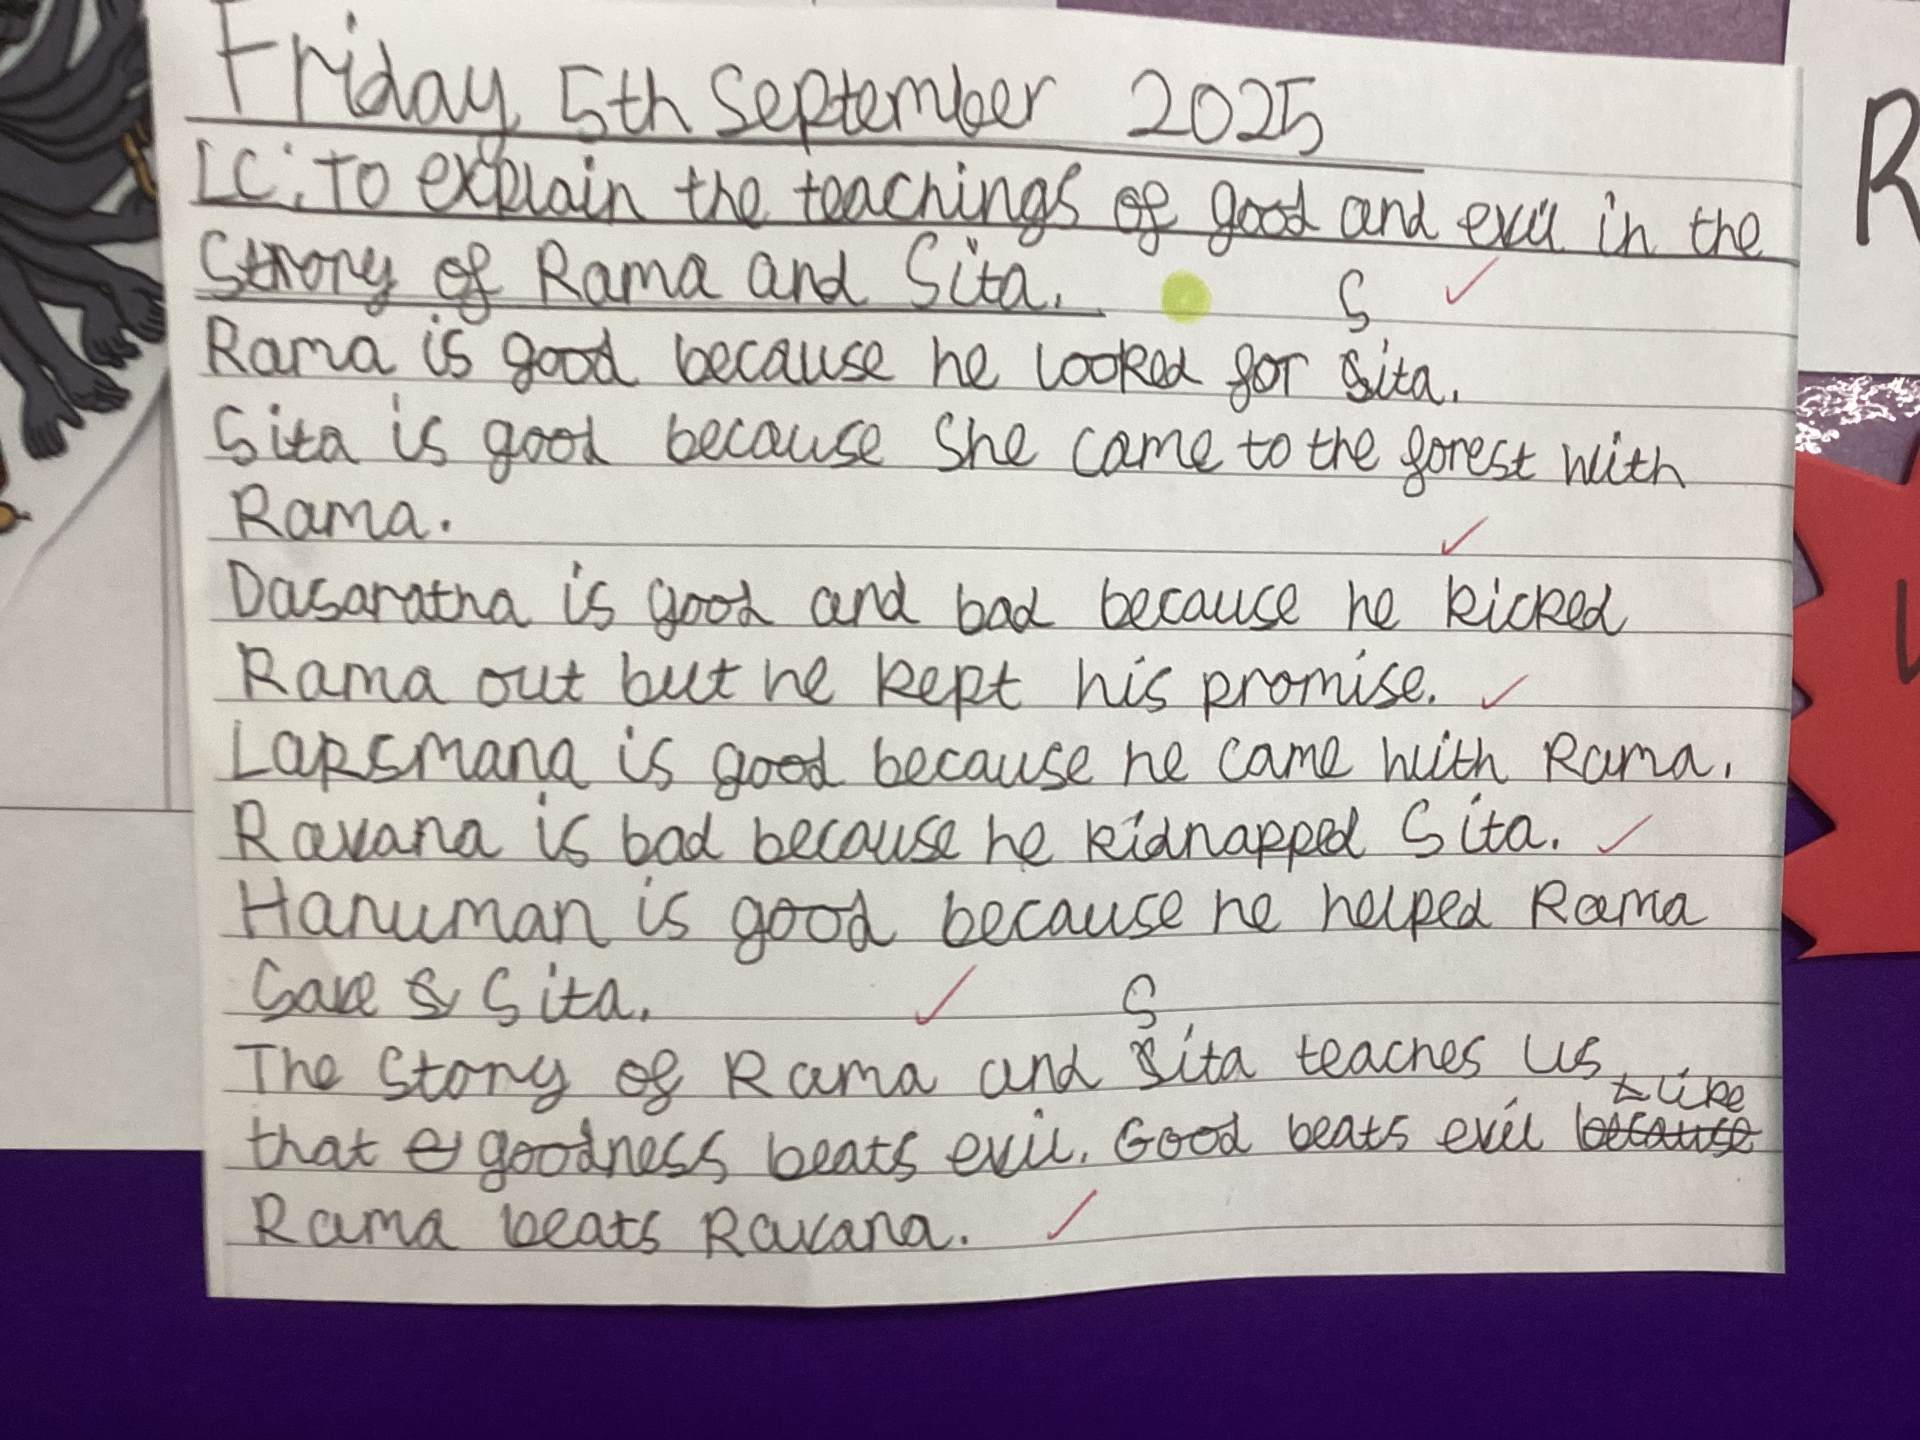 Friday 5th September 2025
LC: To explain the teachings of good and evil in the
Strory of Rama and Sita.
S
Rama is good because he looked for sita.
Sita is good because She came to the forest with
Rama.
Dasaratha is good and bad because he kicked
Rama out but he kept his promise.
Laksmana is good because he came with Rama.
Ravana is bad because he kidnapped Sita.
Hanuman is good because he helped Rama
Save S Sita.
S
The Story of Rama and sita teaches us
like
that e goodness beats evil. Good beats evil because
Rama beats Ravana.
R